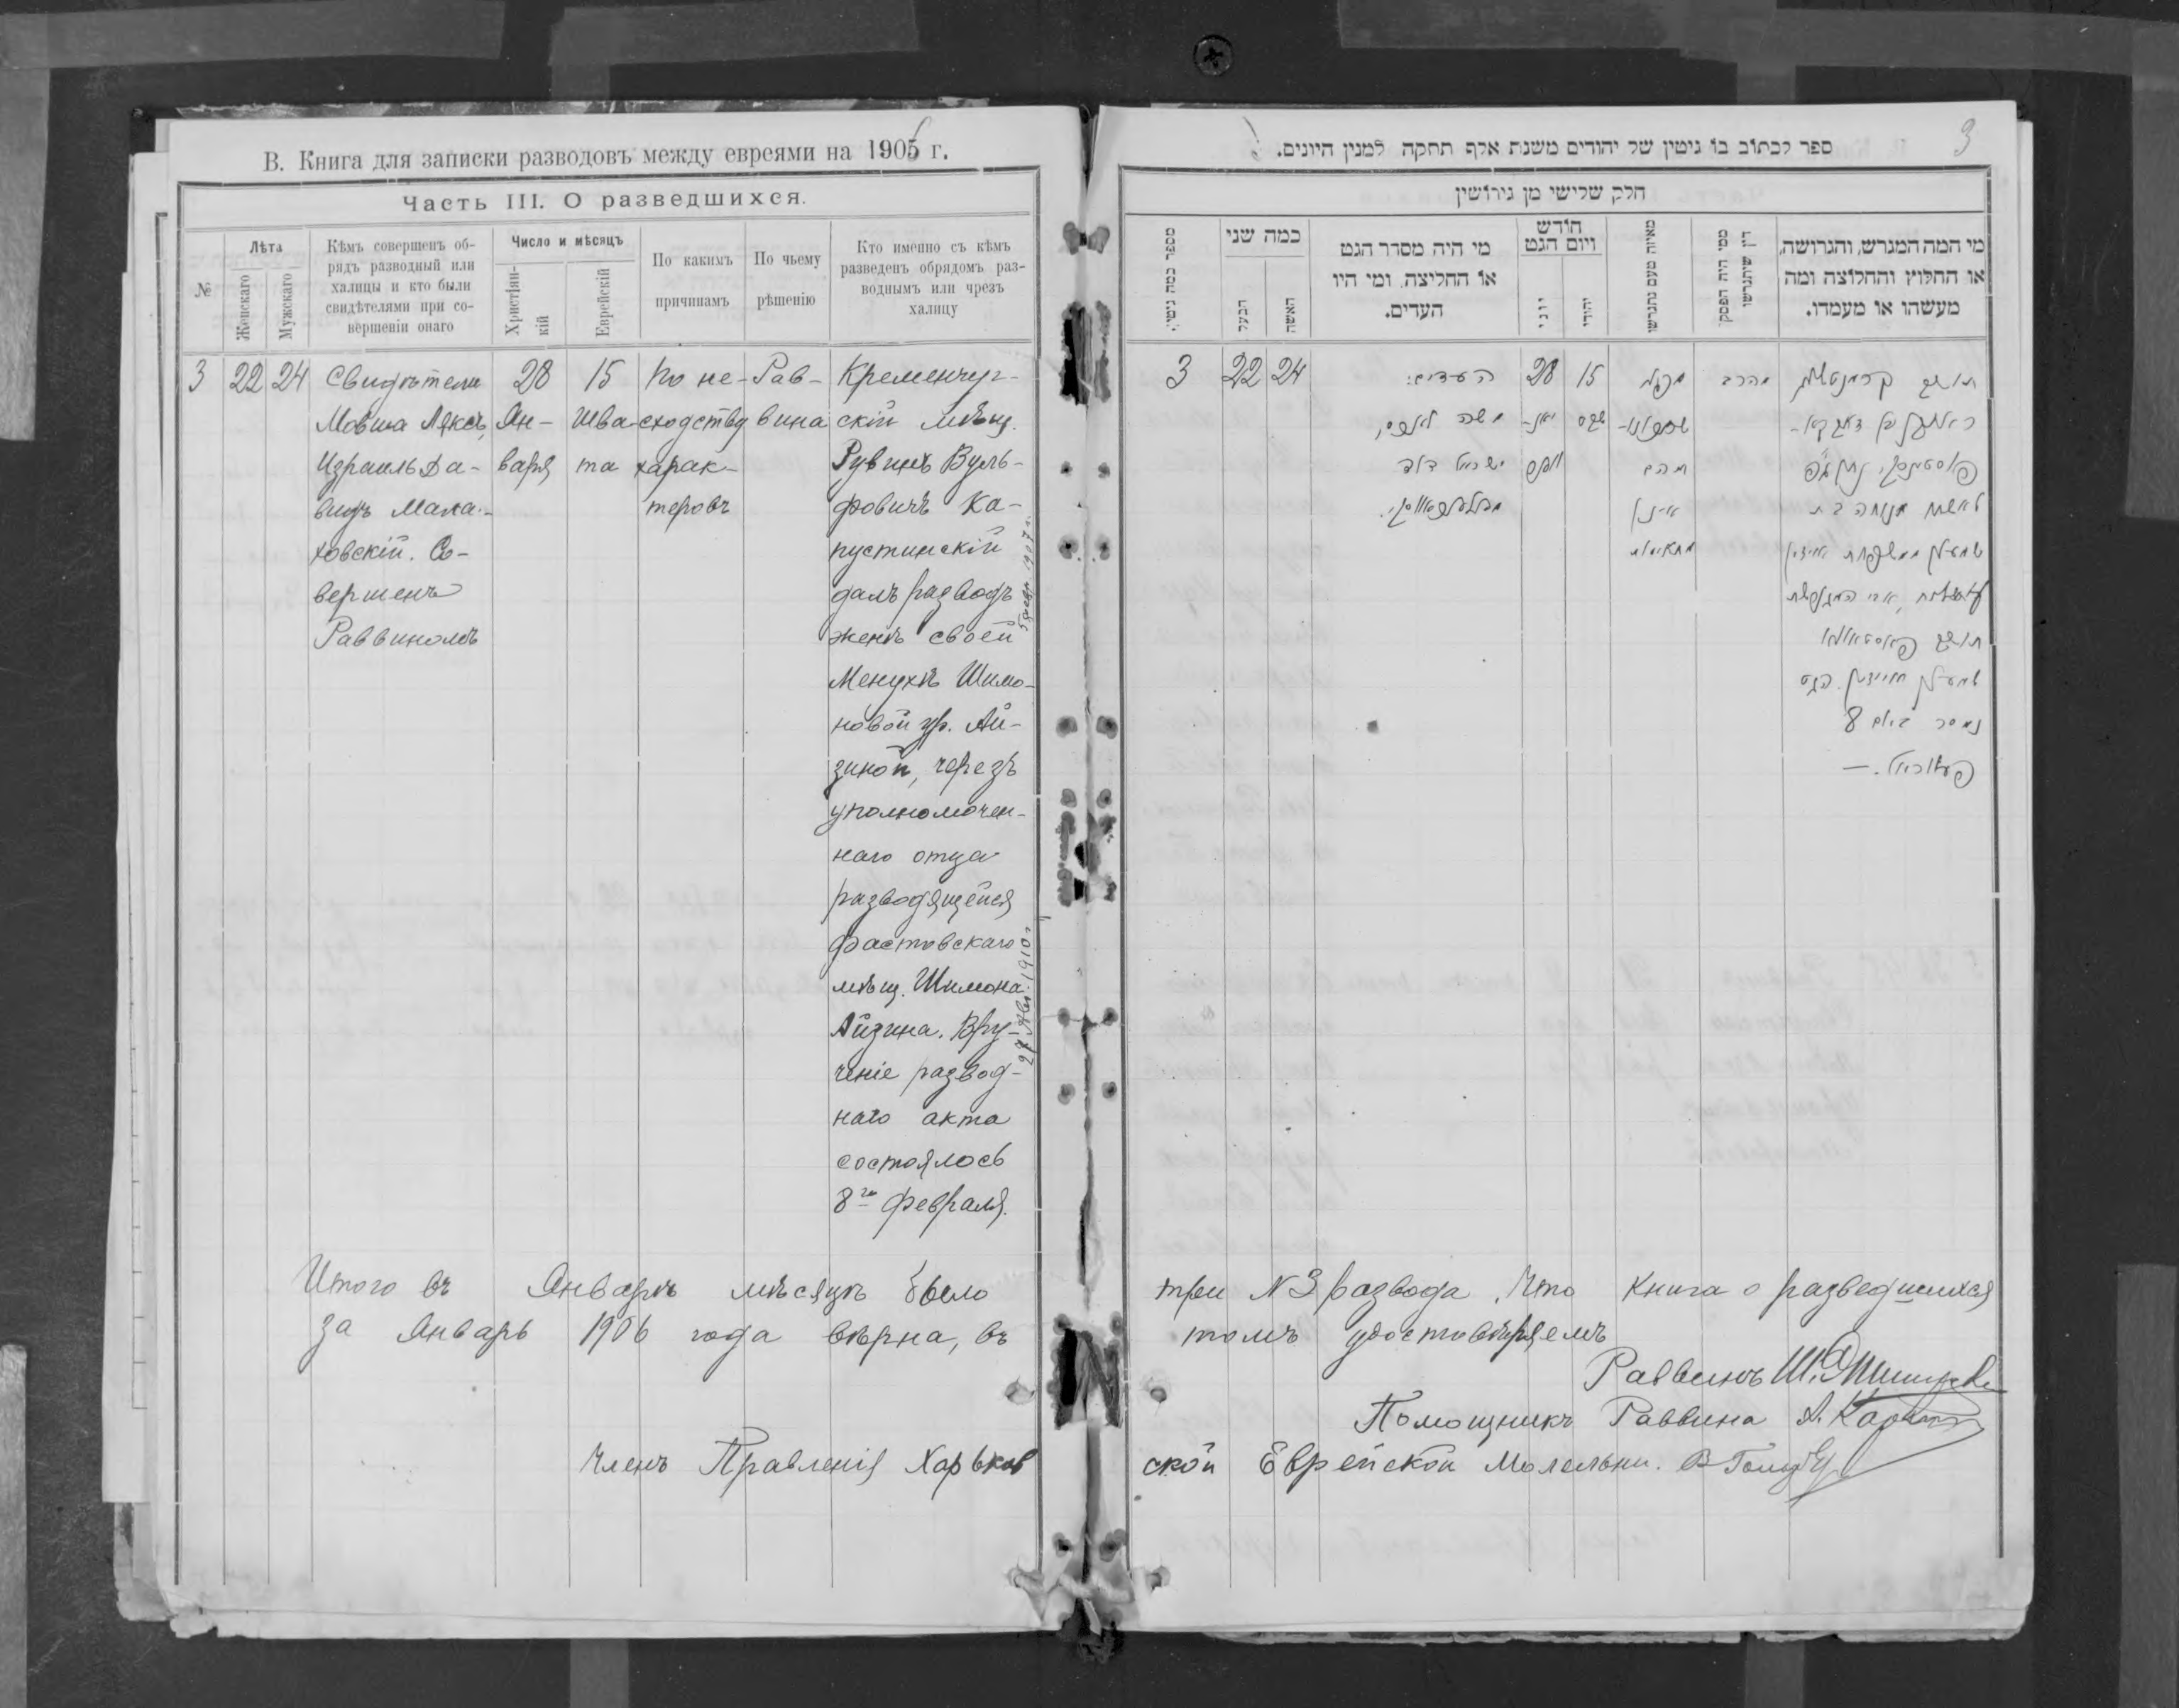 В. Книга для записки разводовъ между евреями на 1906 г.
Часть III. О разведшихся.
№
Лѣта
Женскаго
Мужскаго
Кѣмъ совершенъ об-
рядъ разводный или
халицы и кто были
свидѣтелями при со-
вершеніи онаго
Число и мѣсяцъ
Христіян-
кій
Еврейскій
По какимъ
причинамъ
По чьему
рѣшенію
Кто именно съ кѣмъ
разведенъ обрядомъ раз-
воднымъ или чрезъ
халицу
3
22
24
Свидѣтели
Мовша Ляксъ,
Израиль Да-
видъ Мала-
ховскій. Со-
вершенъ
Раввиномъ
28
Ян-
варя
15
Шва-
та
По не-
сходству
харак-
теровъ
Рав-
вина
Кременчуг-
скій мѣщ.
Рувинъ Вуль-
фовичъ Ка-
пустинскій
далъ разводъ
женѣ своей
Менухѣ Шимо-
новой ур. Ай-
зиной, черезъ
уполномочен-
наго отца
разводящейся
фастовскаго
мѣщ. Шимона
Айзина. Вру-
ченіе развод-
наго акта
состоялось
8го Февраля.
5 февр. 1907 г.
27 Авг. 1910 г.
3
ספר לכתוב בו גיטין של יהודים משנת אלף תתקה למנין היונים.
חלק שלישי מן גירושין
מספר כמה גיטין.
כמה שני
הבעל
האשה
מי היה מסדר הגט
או החליצה, ומי היו
העדים.
חודש
ויום הגט
יוני
יהודי
מאיזה טעם נתגרשו
ממי היה הפסק
דין שיתגרשו
מי המה המגרש, והגרושה,
או החלוץ והחלוצה ומה
מעשהו או מעמדו.
3
22
24
העדים:
משה
ישראל דוד
28
יאנ-
15
שבט
מהרב
תושב
לאשתו מנוחה בת
תושב
הגט
נמסר ביום 8
פעווראל. —
Итого въ Январѣ мѣсяцѣ было три N3 развода. Что книга о разведшихся
за Январь 1906 года вѣрна, въ томъ удостовѣряемъ
Раввинъ Ш.
Помощникъ Раввина А.
Членъ Правленія Харьковской Еврейской Молельни.